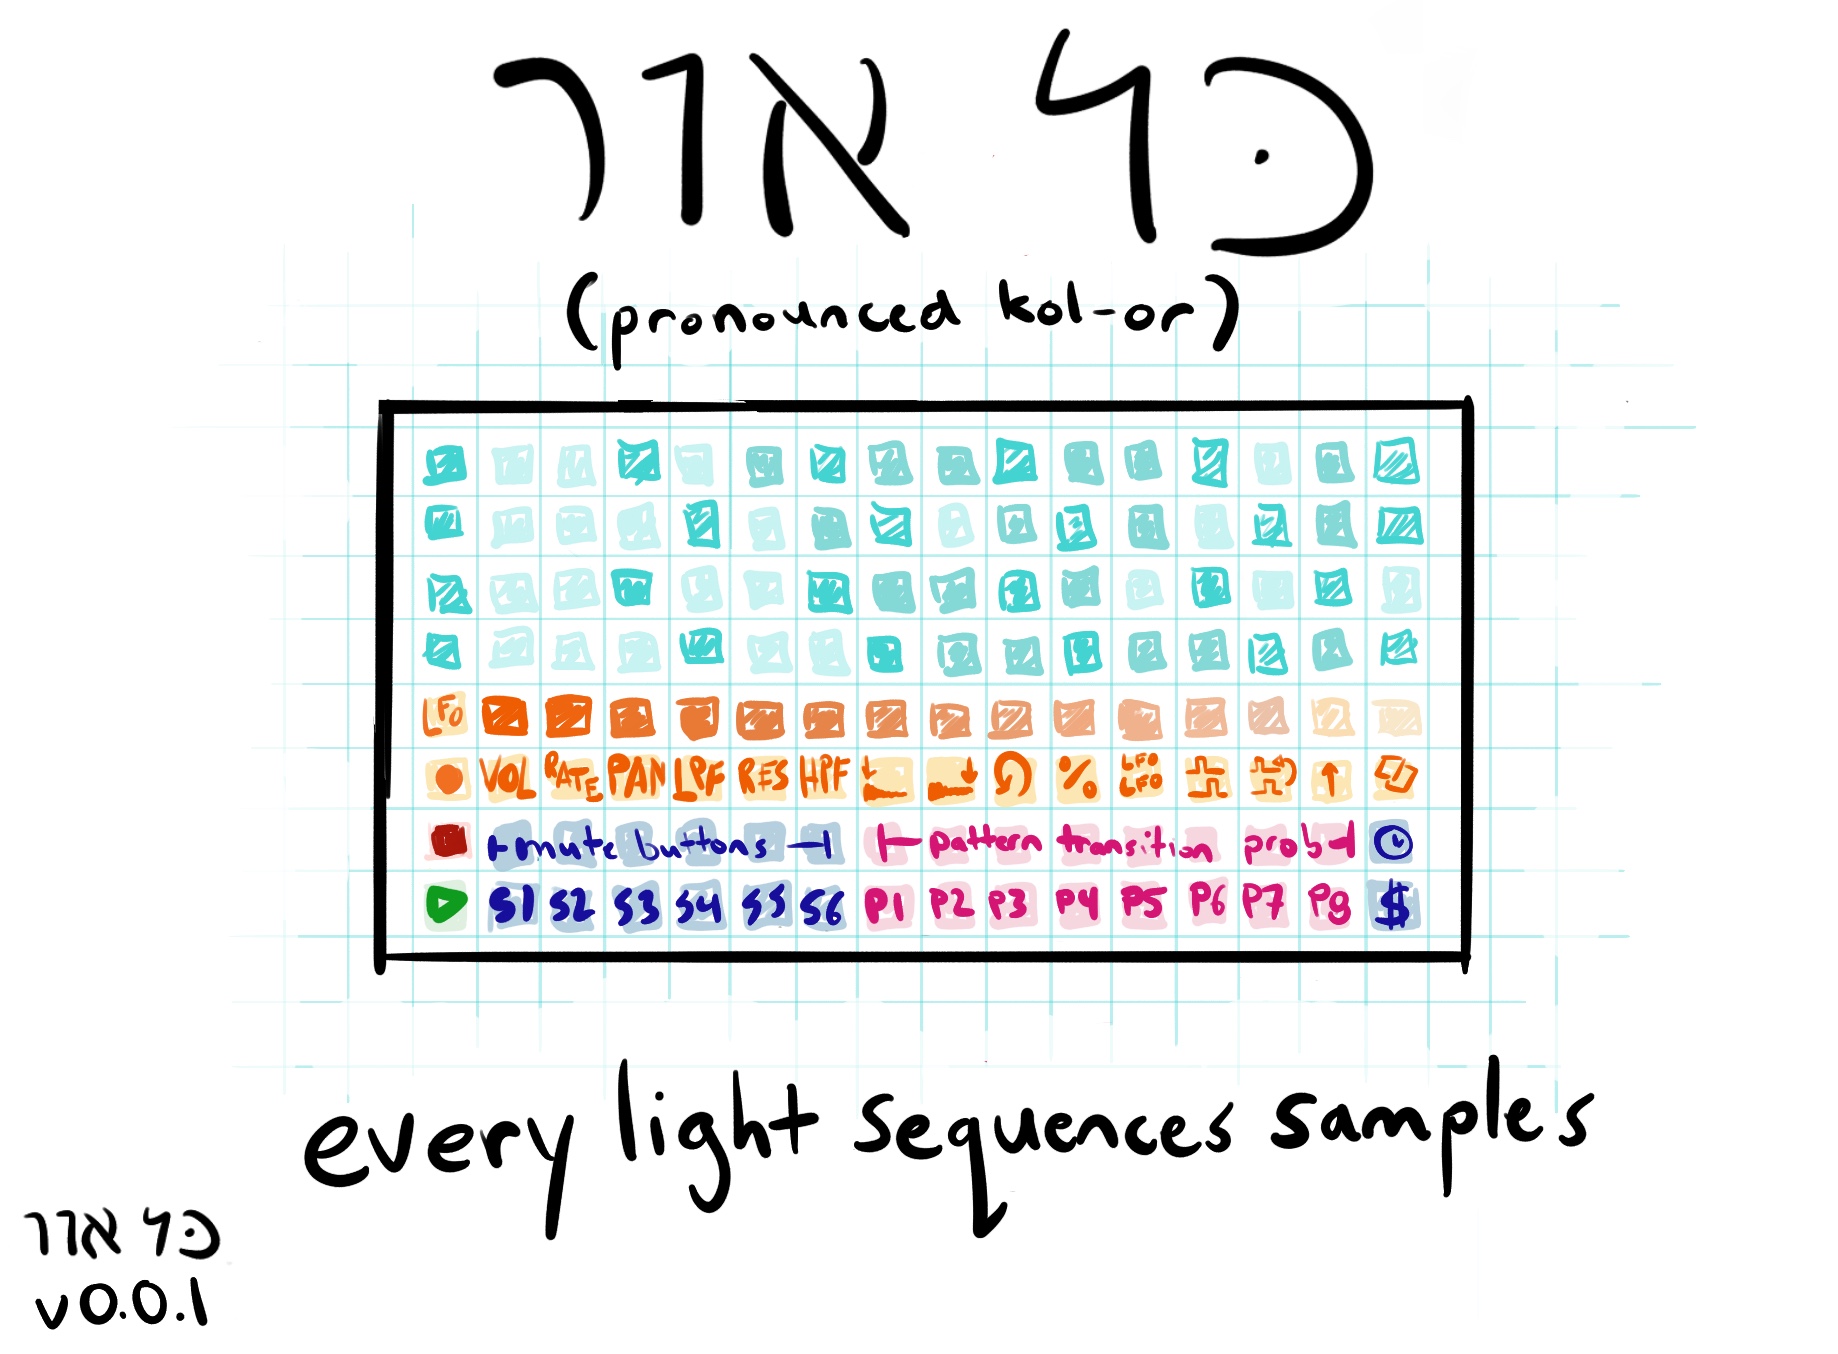 כּל אור
(pronounced kol-or)
LFO
VOL RATE PAN LPF RES HPF % LFO LFO
mute buttons pattern transition prob
S1 S2 S3 S4 S5 S6 P1 P2 P3 P4 P5 P6 P7 P8 $
every light sequences samples
כּל אור
v0.0.1